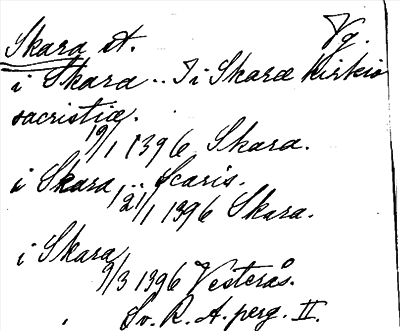 Skara st. Vg.
i Skara .. I i Skaræ Kirkio
sacristiæ.
19/1 1396 Skara.
i Skara, .. Scaris.
21/1 1396 Skara.
i Skara
9/3 1396 Vesterås.
Sv. R. A. perg. II.